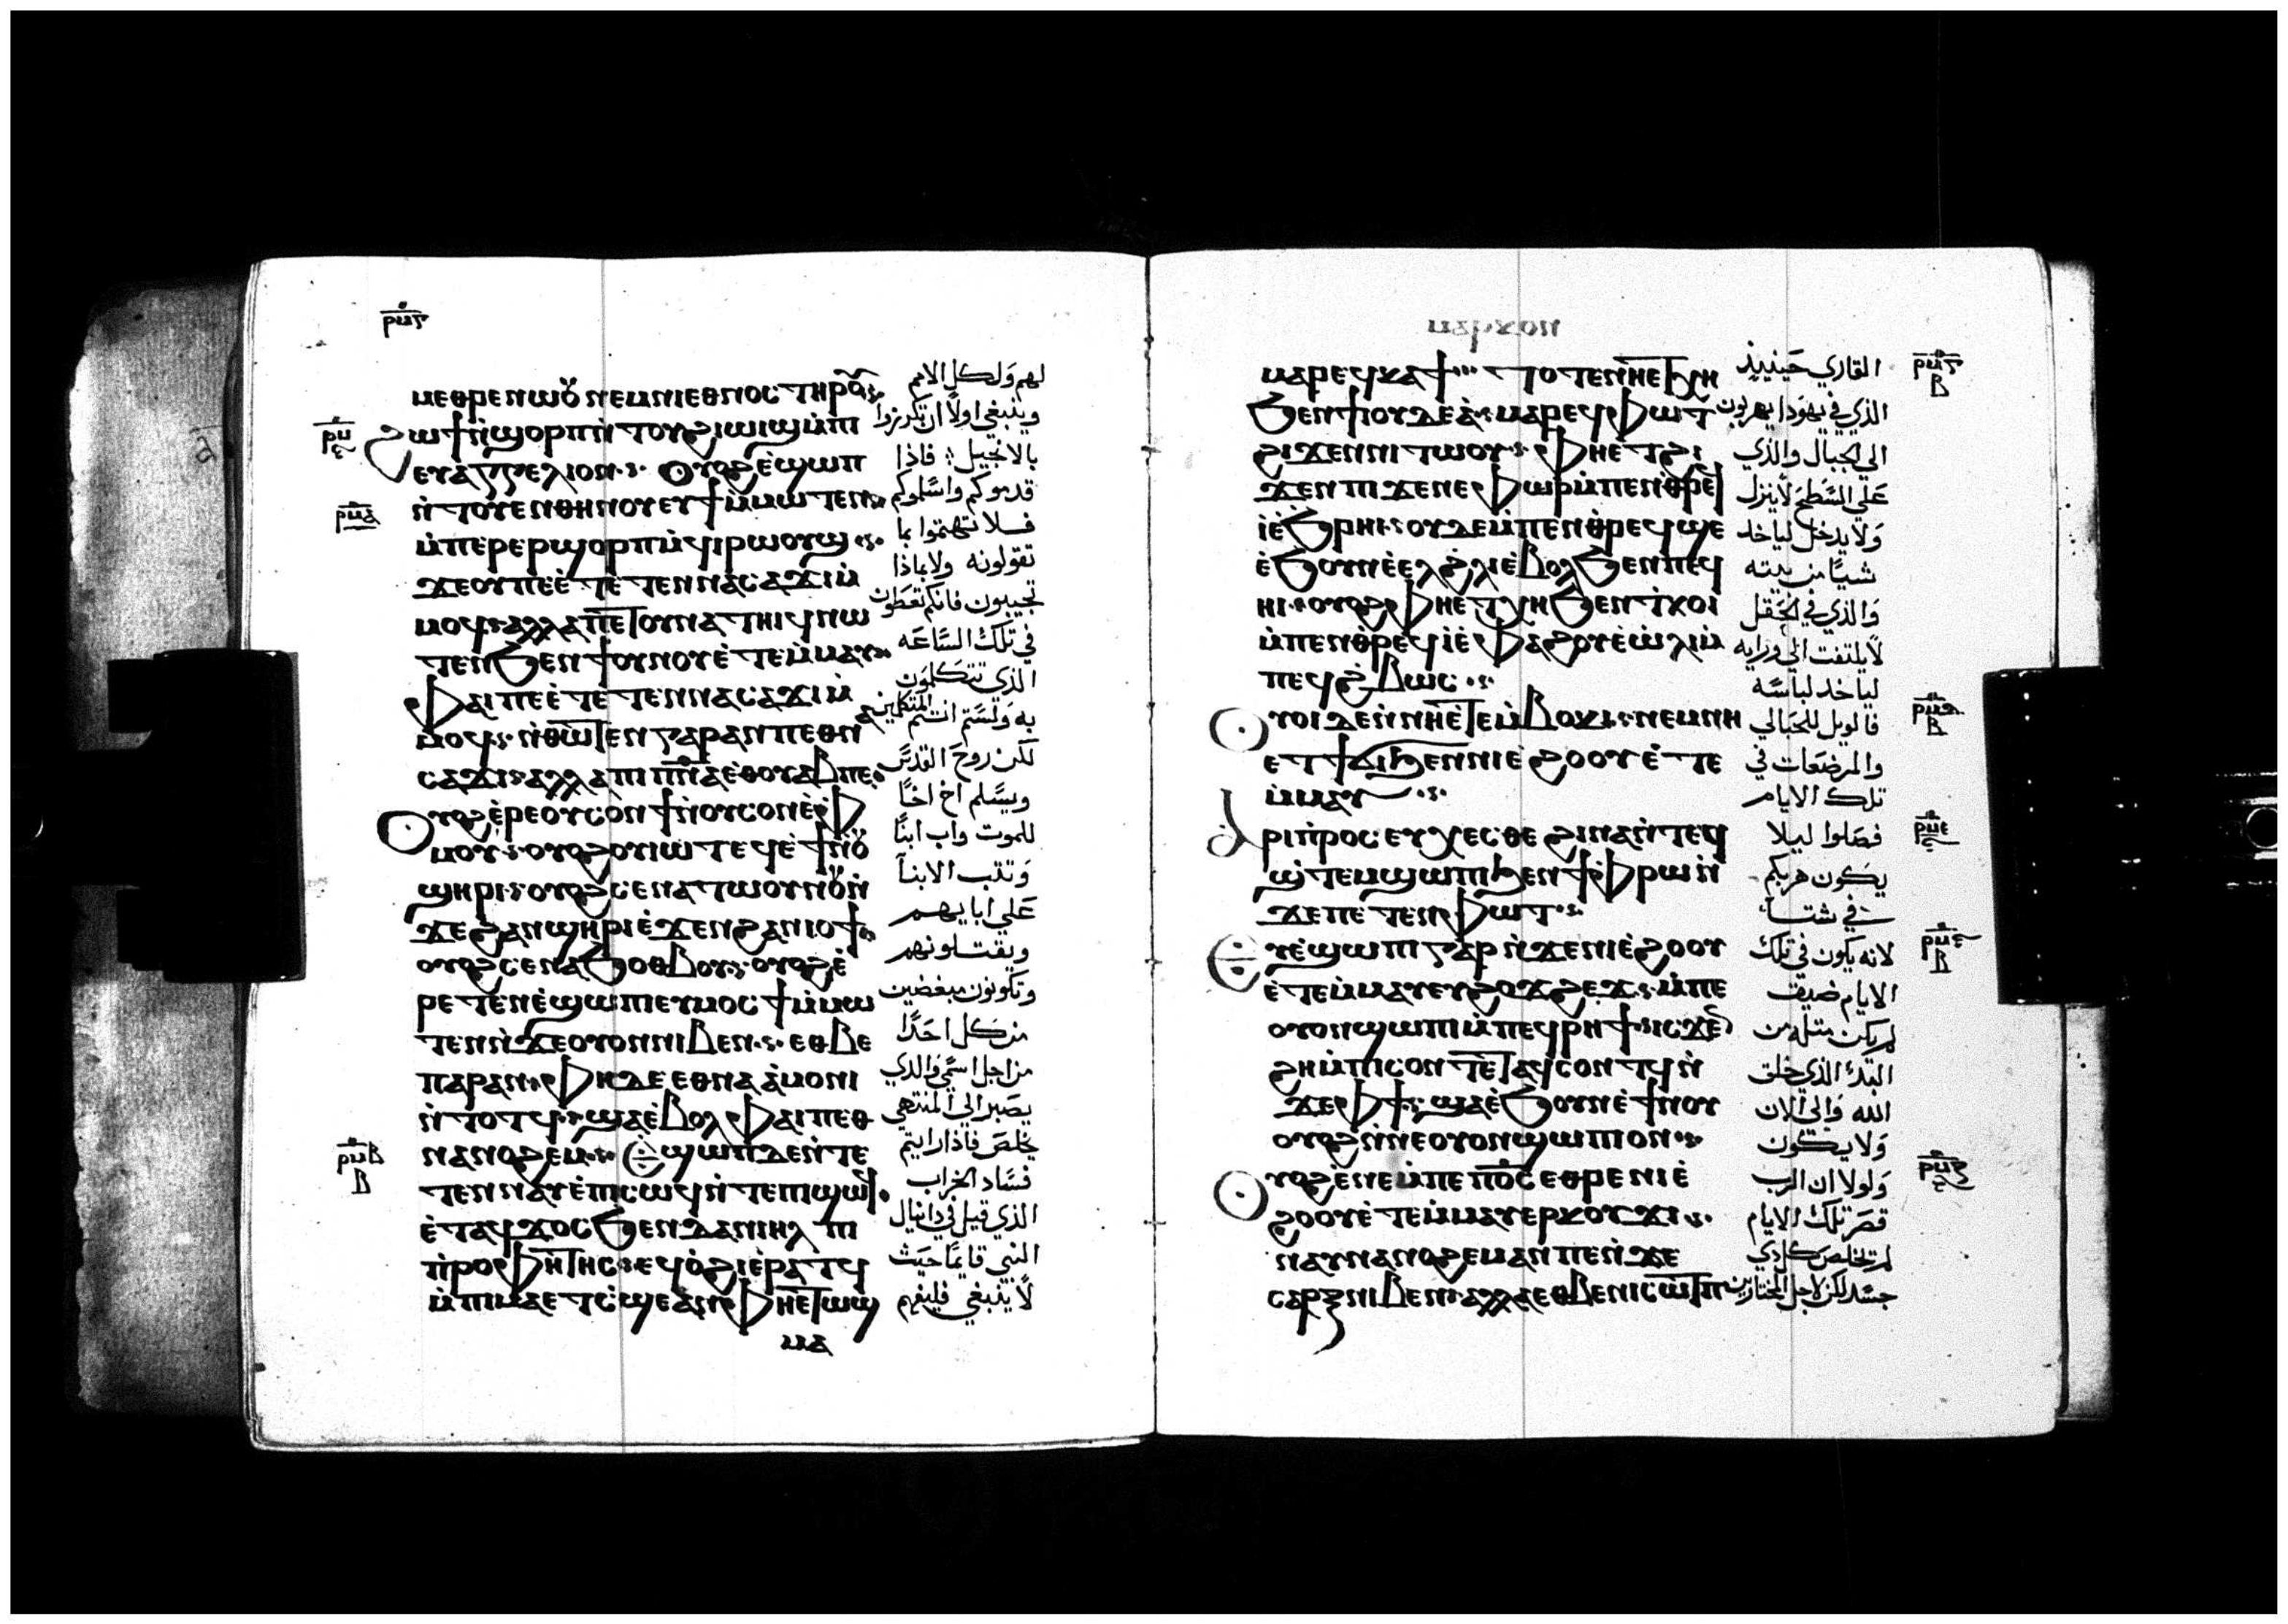 ⲙⲉⲑⲣⲉ ⲛⲱⲟⲩ ⲛⲉⲙ ⲛⲓⲉⲑⲛⲟⲥ ⲧⲏⲣⲟⲩ
ϩⲱϯ ⲛ̀ϣⲟⲣⲡ ⲛ̀ⲧⲟⲩϩⲓⲱⲓϣ ⲙ̀ⲡ
ⲉⲩⲁⲅⲅⲉⲗⲓⲟⲛ ⲟⲩⲟϩ ⲉ̀ϣⲱⲡ
ⲛ̀ⲧⲟⲩⲉⲛ ⲑⲏⲛⲟⲩ ⲉⲩϯ ⲙ̀ⲙⲱⲧⲉⲛ
ⲙ̀ⲡⲉⲣⲉⲣϣⲟⲣⲡ ⲛ̀ϥⲓⲣⲱⲟⲩϣ
ϫⲉ ⲟⲩ ⲡⲉ ⲉ̀ⲧⲉⲧⲉⲛⲛⲁⲥⲁϫⲓ ⲙ̀
ⲙⲟϥ ⲁⲗⲗⲁ ⲡⲉⲧⲟⲩⲛⲁⲧⲏⲓϥ ⲛⲱ
ⲧⲉⲛ ϧⲉⲛ ϯⲟⲩⲛⲟⲩ ⲉ̀ⲧⲉⲙ̀ⲙⲁⲩ
ⲫⲁⲓ ⲡⲉ ⲉ̀ⲧⲉⲧⲉⲛⲛⲁⲥⲁϫⲓ ⲙ̀
ⲙⲟϥ ⲛ̀ⲑⲱⲧⲉⲛ ⲅⲁⲣ ⲁⲛ ⲡⲉⲑⲛ
ⲥⲁϫⲓ ⲁⲗⲗⲁ ⲡⲓⲡ̅ⲛ̅ⲁ̅ ⲉⲑⲟⲩⲁⲃ ⲡⲉ
ⲟⲩⲟϩ ⲉ̀ⲣⲉ ⲟⲩⲥⲟⲛ ϯ ⲛ̀ⲟⲩⲥⲟⲛ ⲉ̀ⲫ
ⲙⲟⲩ ⲟⲩⲟϩ ⲟⲩⲓⲱⲧ ⲉϥⲉ̀ϯ ⲛ̀ⲟⲩ
ϣⲏⲣⲓ ⲟⲩⲟϩ ⲥⲉⲛⲁⲧⲱⲟⲩⲛⲟⲩ ⲛ̀
ϫⲉ ϩⲁⲛϣⲏⲣⲓ ⲉ̀ϫⲉⲛ ϩⲁⲛⲓⲟϯ
ⲟⲩⲟϩ ⲥⲉⲛⲁϧⲟⲑⲃⲟⲩ ⲟⲩⲟϩ ⲉ̀
ⲣⲉⲧⲉⲛⲉ̀ϣⲱⲡⲓ ⲉⲩⲙⲟⲥϯ ⲙ̀ⲙⲱ
ⲧⲉⲛ ⲛ̀ϫⲉ ⲟⲩⲟⲛ ⲛⲓⲃⲉⲛ ⲉⲑⲃⲉ
ⲡⲁⲣⲁⲛ ⲫⲏ ⲇⲉ ⲉⲑⲛⲁⲁ̀ⲙⲟⲛⲓ
ⲛ̀ⲧⲟⲧϥ ϣⲁⲉ̀ⲃⲟⲗ ⲫⲁⲓ ⲡⲉⲑ
ⲛⲁⲛⲟϩⲉⲙ ⲉϣⲱⲡ ⲇⲉ ⲛ̀ⲧⲉ
ⲧⲉⲛⲛⲁⲩ ⲉ̀ⲡⲓⲥⲱϥ ⲛ̀ⲧⲉ ⲡⲓϣⲱϥ
ⲉ̀ⲧⲁϥϫⲟⲥ ϧⲉⲛ ⲇⲁⲛⲓⲏⲗ ⲡⲓ
ⲡ̀ⲣⲟⲫⲏⲧⲏⲥ ⲉϥⲟ̀ϩⲓ ⲉ̀ⲣⲁⲧϥ
ⲙ̀ⲡⲓⲙⲁ ⲉⲧⲥ̀ϣⲉ ⲁⲛ ⲫⲏⲉⲧⲱϣ
ⲙⲁ
لهم ولكل الامم
وينبغي اولا ان تكرزوا
بالانجيل فاذا
قدموكم واسلموكم
فلا تهتموا بما
تقولونه ولا بماذا
تجيبون فانكم تعطون
في تلك الساعه
الذي تتكلمون
به ولستم انتم المتكلمين
لكن روح القدس
ويسلم اخ اخا
للموت واب ابنا
وتثب الابنا
علي ابايهم
ويقتلونهم
وتكونون مبغضين
من كل احدا
من اجل اسمي والذي
يصبر الي المنتهي
يخلص فاذا رايتم
فساد الخراب
الذي قيل في دانيال
النبي قايما حيث
لا ينبغي فليفهم
ⲙⲁⲣⲉϥⲕⲁϯ ⲧⲟⲧⲉ ⲛⲏⲉⲧⲭⲏ
ϧⲉⲛ ϯⲟⲩⲇⲉⲁ̀ ⲙⲁⲣⲉϥⲫⲱⲧ
ϩⲓϫⲉⲛ ⲛⲓⲧⲱⲟⲩ ⲫⲏⲉⲧϩⲓ
ϫⲉⲛ ⲡⲓϫⲉⲛⲉⲫⲱⲣ ⲙ̀ⲡⲉⲛⲑⲣⲉϥ
ⲓ̀ ⲉ̀ϧⲣⲏⲓ ⲟⲩⲇⲉ ⲙ̀ⲡⲉⲛⲑⲣⲉϥϣⲉ
ⲉ̀ϧⲟⲩⲛ ⲉ̀ⲉⲗ ϩ̀ⲗⲓ ⲉ̀ⲃⲟⲗ ϧⲉⲛ ⲡⲉϥ
ⲏⲓ ⲟⲩⲟϩ ⲫⲏⲉⲧⲭⲏ ϧⲉⲛ ⲧ̀ⲕⲟⲓ
ⲙ̀ⲡⲉⲛⲑⲣⲉϥⲓ̀ ⲉ̀ⲫⲁϩⲟⲩ ⲉ̀ⲱ̀ⲗⲓ ⲙ̀
ⲡⲉϥϩ̀ⲃⲱⲥ
ⲟⲩⲟⲓ ⲇⲉ ⲛ̀ⲛⲏⲉⲧⲉⲙ̀ⲃⲟⲕⲓ ⲛⲉⲙ ⲛⲏ
ⲉⲧϯϭⲓ ϧⲉⲛ ⲛⲓⲉ̀ϩⲟⲟⲩ ⲉ̀ⲧⲉ
ⲙ̀ⲙⲁⲩ
ⲁⲣⲓⲡ̀ⲣⲟⲥⲉⲩⲭⲉⲥⲑⲉ ϩⲓⲛⲁ ⲛ̀ⲧⲉϥ
ϣ̀ⲧⲉⲙϣⲱⲡⲓ ϧⲉⲛ ϯⲫⲣⲱ ⲛ̀
ϫⲉ ⲡⲉⲧⲉⲛⲫⲱⲧ
ⲉⲩⲉ̀ϣⲱⲡⲓ ⲅⲁⲣ ⲛ̀ϫⲉ ⲛⲓⲉ̀ϩⲟⲟⲩ
ⲉ̀ⲧⲉⲙ̀ⲙⲁⲩ ⲉⲩϩⲟϫϩⲉϫ ⲙ̀ⲡⲉ
ⲟⲩⲟⲛ ϣⲱⲡⲓ ⲙ̀ⲡⲉϥⲣⲏϯ ⲓⲥϫⲉⲛ
ϩⲏ ⲙ̀ⲡⲓⲥⲟⲛⲧ ⲉⲧⲁϥⲥⲟⲛⲧϥ ⲛ̀
ϫⲉ ⲫϯ ϣⲁ ⲉ̀ϧⲟⲩⲛ ⲉ̀ϯⲛⲟⲩ
ⲟⲩⲟϩ ⲛ̀ⲛⲉ ⲟⲩⲟⲛ ϣⲱⲡⲓ ⲟⲛ
ⲟⲩⲟϩ ⲉ̀ⲛⲉ ⲙ̀ⲡⲉ ⲡ̅ⲟ̅ⲥ̅ ⲉⲑⲣⲉ ⲛⲓⲉ̀
ϩⲟⲟⲩ ⲉ̀ⲧⲉⲙ̀ⲙⲁⲩ ⲉⲣⲕⲟⲩϫⲓ
ⲛⲁⲩⲛⲁⲛⲟϩⲉⲙ ⲁⲛ ⲡⲉ ⲛ̀ϫⲉ
ⲥⲁⲣⲝ ⲛⲓⲃⲉⲛ ⲁⲗⲗⲁ ⲉⲑⲃⲉ ⲛⲓⲥⲱⲧⲡ
القاري حينيذ
الذي في يهودا يهربون
الي الجبال والذي
علي السطح لا ينزل
ولا يدخل لياخد
شيا من بيته
والذي في الحقل
لا يلتفت الي ورايه
لياخد لباسه
فالويل للحبالي
والمرضعات في
تلك الايام
فصلوا ليلا
يكون هربكم
في شتا
لانه يكون في تلك
الايام ضيق
لم يكن مثله من
البدء الذي خلق
الله والي الان
ولا يكون
ولولا ان الرب
قصر تلك الايام
لم تخلص كل ذي
جسد لكن لاجل المختارين